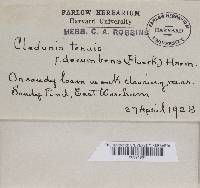 FARLOW HERBARIUM
Harvard University
HERB. C. A. ROBBINS
HARVARD
UNIVERSITY
Cladonia tenuis
f. decumbens (Floerk.) Harm.
On sandy loam in oak clearing near
Sandy Pond, East Wareham
27 April 1928